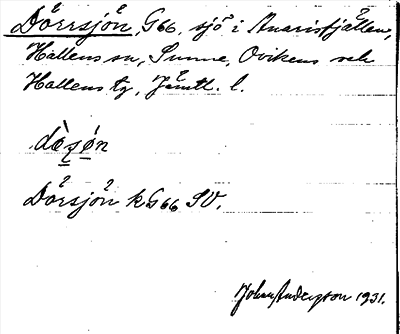 Dörrsjön, G66. sjö i Anarisfjällen,
Hallens sn, Sunne, Ovikens och
Hallens tg, Jämtl. l.
dòʂøn
Dörsjön k G66 SV.
Johan Anderzson 1931.